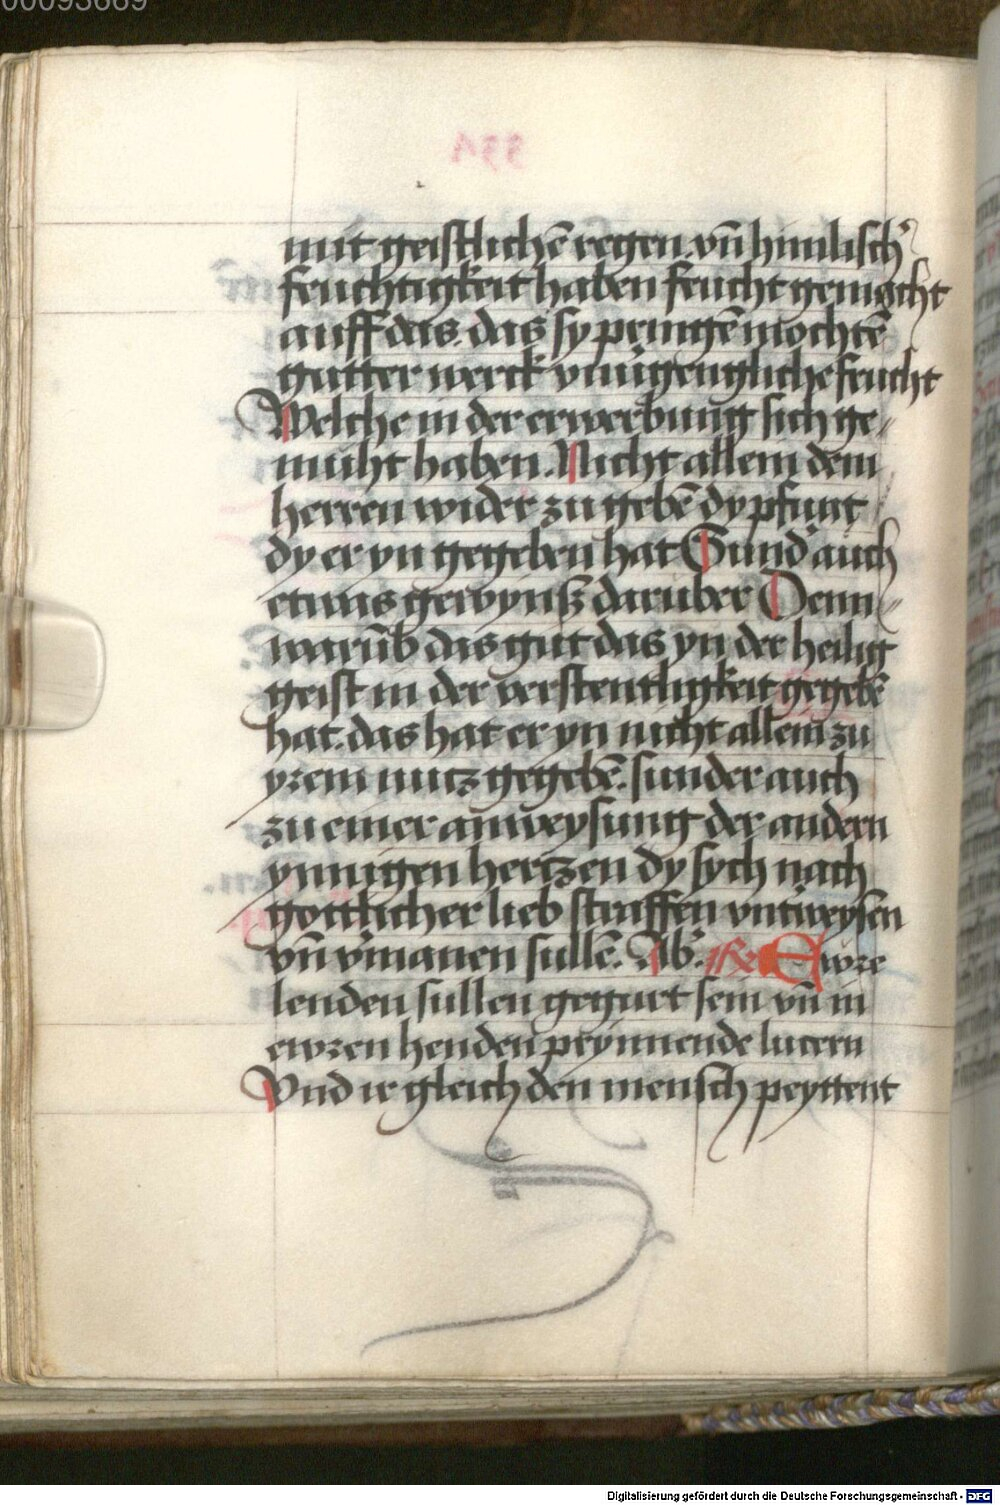 00093669
mit geistlichē regen vn̄ himlisch'
feuchtigkeit haben feucht gemacht
auff das. das sy pringē mochtē
gutter werck vnuͦgengliche frucht
Welche in der erwerbung sich ge/
muͤht haben. Nicht allein dem
herren wider zu gebē dy pfunt
dy er yn gegeben hat Sund' auch
etwas gewynß daruber Denn
warūb das gut das yn der heilig
geist in der verstentligkeit gegebē
hat. das hat er yn nicht allein zu
yrem nutz gegebē. sunder auch
zu einer anweysung der andern
ynnigen hertzen dy sych nach
gottlicher lieb straffen vntweysen
vn̄ v'manen sullē. Ab'. R Ewre
lenden sullen gegurt sein vn̄ in
ewren henden prynnende lucern
Vnd ir gleich den mensch peyttent
Digitalisierung gefördert durch die Deutsche Forschungsgemeinschaft - DFG